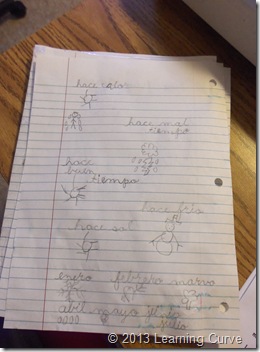 hace calor
hace mal
tiempo
hace
buen
tiempo
hace frío
hace sol
enero febrero marzo
abril mayo
julio
© 2013 Learning Curve